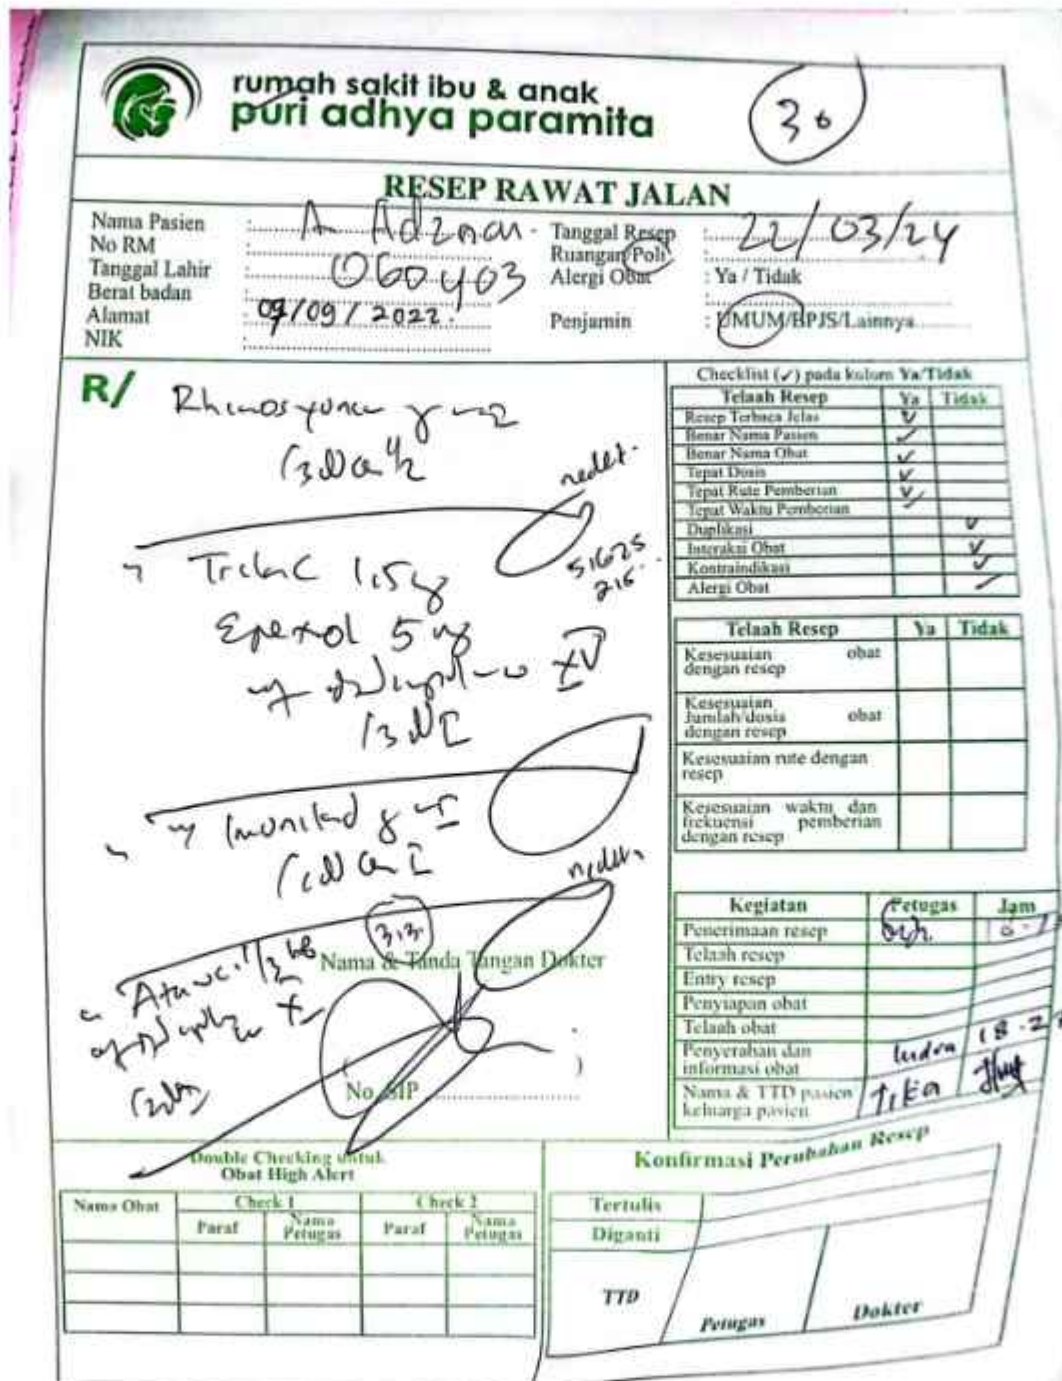 rumah sakit ibu & anak
puri adhya paramita
30
RESEP RAWAT JALAN
Nama Pasien : An. Adznan
No RM : 060403
Tanggal Lahir
Berat badan
Alamat : 07/09/2022.
NIK
Tanggal Resep : 22/03/24
Ruangan/Poli :
Alergi Obat : Ya / Tidak
Penjamin : UMUM/BPJS/Lainnya
R/
Rhinos
1/2
nedet.
Trilac 1,5 mg
Epexol 5 mg
XV
/3 dd I
Imunited
I
nedet.
3.3.
1/3
X
Nama & Tanda Tangan Dokter
( )
No. SIP
Checklist (✓) pada kolom Ya/Tidak
Telaah Resep Ya Tidak
Resep Terbaca Jelas ✓
Benar Nama Pasien ✓
Benar Nama Obat ✓
Tepat Dosis ✓
Tepat Rute Pemberian ✓
Tepat Waktu Pemberian ✓
Duplikasi ✓
Interaksi Obat ✓
Kontraindikasi ✓
Alergi Obat ✓
Telaah Resep Ya Tidak
Kesesuaian obat
dengan resep
Kesesuaian
Jumlah/dosis obat
dengan resep
Kesesuaian rute dengan
resep
Kesesuaian waktu dan
frekuensi pemberian
dengan resep
Kegiatan Petugas Jam
Penerimaan resep
Telaah resep
Entry resep
Penyiapan obat
Telaah obat
Penyerahan dan
informasi obat Indra 18.2
Nama & TTD pasien
keluarga pasien Tika
Double Checking untuk
Obat High Alert
Nama Obat Check 1 Check 2
Paraf Nama Petugas Paraf Nama Petugas
Konfirmasi Perubahan Resep
Tertulis
Diganti
TTD
Petugas Dokter